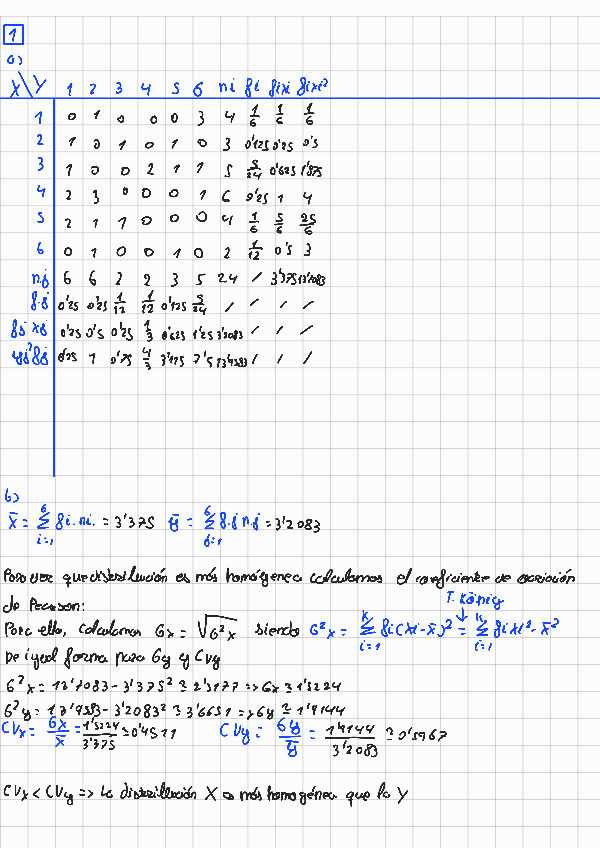 1
a)
X\Y 1 2 3 4 5 6 ni fi fixi fixi²
1 0 1 0 0 0 3 4 1/6 1/6 1/6
2 1 0 1 0 1 0 3 0'125 0'25 0'5
3 1 0 0 2 1 1 5 5/24 0'625 1'875
4 2 3 0 0 0 1 6 0'25 1 4
5 2 1 1 0 0 0 4 1/6 5/6 25/6
6 0 1 0 0 1 0 2 1/12 0'5 3
n.j 6 6 2 2 3 5 24 / 3'375 13'7083
f.j 0'25 0'25 1/12 1/12 0'125 5/24 / / / /
fj xj 0'25 0'5 0'25 1/3 0'625 1'25 3'2083 / / /
yj²fj 0'25 1 0'75 4/3 3'125 7'5 13'9583 / / /
b)
x̄ = Σ(i=1, 6) fi. ni. = 3'375 ȳ = Σ(j=1, 6) f.j n.j = 3'2083
Para ver que distribución es más homógenea calculamos el coeficiente de variación
de Pearson:
T. König
Para ello, calculamos σx = √σ²x siendo σ²x = Σ(i=1, k) fi(xi-x̄)² = Σ(i=1, k) fixi² - x̄²
De igual forma para σy y CVy
σ²x = 13'7083 - 3'375² ≅ 2'3177 => σx ≅ 1'5224
σ²y = 13'9583 - 3'2083² ≅ 3'6651 => σy ≅ 1'9144
CVx = σx/x̄ = 1'5224/3'375 ≅ 0'4511 CVy = σy/ȳ = 1'9144/3'2083 ≅ 0'5967
CVx < CVy => La distribución X es más homogénea que la Y